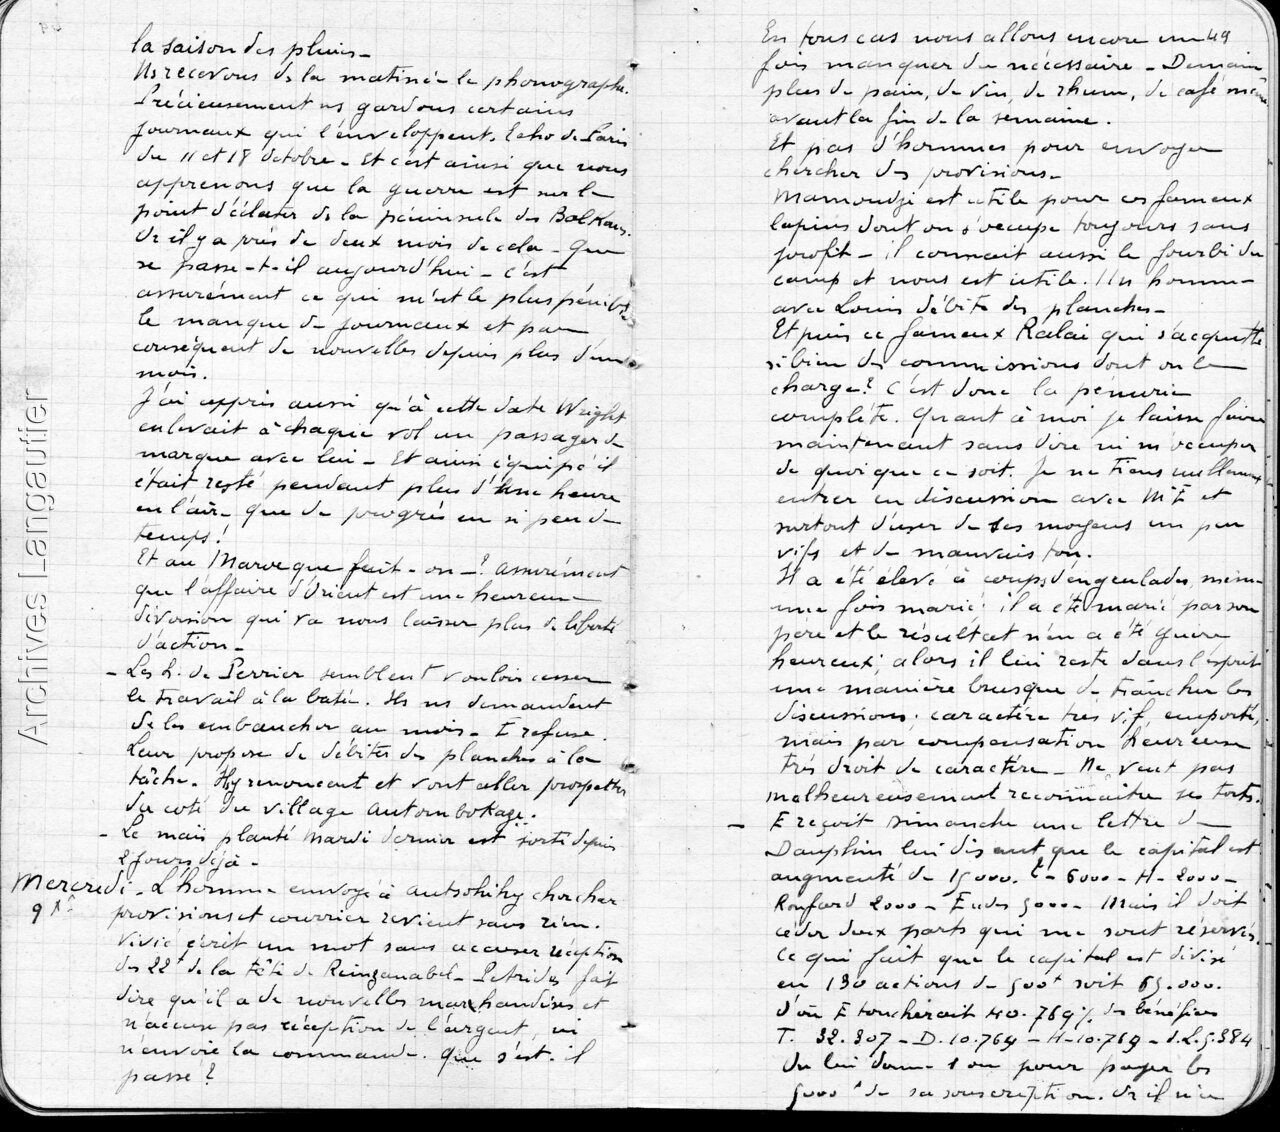 la saison des pluies_
Ns recevons ds la matinée le phonographe.
Précieusement ns gardons certains
journaux qui l'enveloppent. Echo de Paris
du 11 et 18 octobre _ Et c'est ainsi que nous
apprenons que la guerre est sur le
point d'éclater ds la péninsule des Balkans.
Or il y a près de deux mois de cela _ Que
se passe-t-il aujourd'hui _ C'est
assurément ce qui m'est le plus pénible
le manque de journaux et par
conséquent de nouvelles depuis plus d'un
mois.
J'ai appris aussi qu'à cette date Wright
enlevait à chaque vol un passager de
marque avec lui _ Et ainsi équipé il
était resté pendant plus d'une heure
en l'air _ que de progrès en si peu de
temps !
Et au Maroc que fait-on _ ? assurément
que l'affaire d'Orient est une heureuse
division qui va nous laisser plus de liberté
d'action _
_ Les h. de Perrier semblent vouloir cesser
le travail à la batée. Ils ns demandent
de les embaucher au mois _ E refuse.
Leur propose de débiter des planches à la
tâche. Ils y renoncent et vont aller prospecter
du coté du village Antombokaze.
_ Le maïs planté Mardi dernier est sorti depuis
2 jours déjà _
Mercredi _ L'homme envoyé à Antsohihy chercher
9 Xbre
provisions et courrier revient sans rien.
écrit un mot sans accuser réception
des 22f de la tête de _ Petrides fait
dire qu'il a de nouvelles marchandises et
n'accuse pas réception de l'argent, ni
n'envoie la commande. Que s'est-il
passé ?
En tous cas nous allons encore une 49
fois manquer du nécessaire _ Demain
plus de pain, de vin, de rhum, de café même
avant la fin de la semaine.
Et pas d'hommes pour envoyer
chercher des provisions _
Mamoudji est utile pour ces fameux
lapins dont on s'occupe toujours sans
profit _ il connait aussi le fourbi du
camp et nous est utile. Un homme
avec Louis débite des planches _
Et puis ce fameux Ralai qui s'acquitte
si bien des commissions dont on le
charge ? C'est donc la pénurie
complète. Quant à moi je laisse faire
maintenant sans dire ni m'occuper
de quoi que ce soit. Je ne tiens nullement
entrer en discussion avec Mr E et
surtout d'user de ses moyens un peu
vifs et de mauvais ton.
Il a été élevé à coups d'engeulades, même
une fois marié ; il a été marié par son
père et le résultat n'en a été guère
heureux ; alors il lui reste dans l'esprit
une manière brusque de trancher les
discussions ; caractère très vif, emporté,
mais par compensation heureuse
très droit de caractère _ Ne veut pas
malheureusement reconnaitre ses torts.
_ E reçoit dimanche une lettre de
Dauphin lui disant que le capital est
augmenté de 15000. t _ 6000 _ H _ 2000 _
2000 _ 5000 _ Mais il doit
céder deux parts qui me sont réservés.
Ce qui fait que le capital est divisé
en 130 actions de 500f soit 65.000.
d'où E toucherait 40.769 % des bénéfices
T. 32.307 _ D. 10.769 _ H _ 10.769 _ d.L. 5.384
On lui donne 1 an pour payer les
5000f de sa souscription. Or il n'a
Archives Langautier